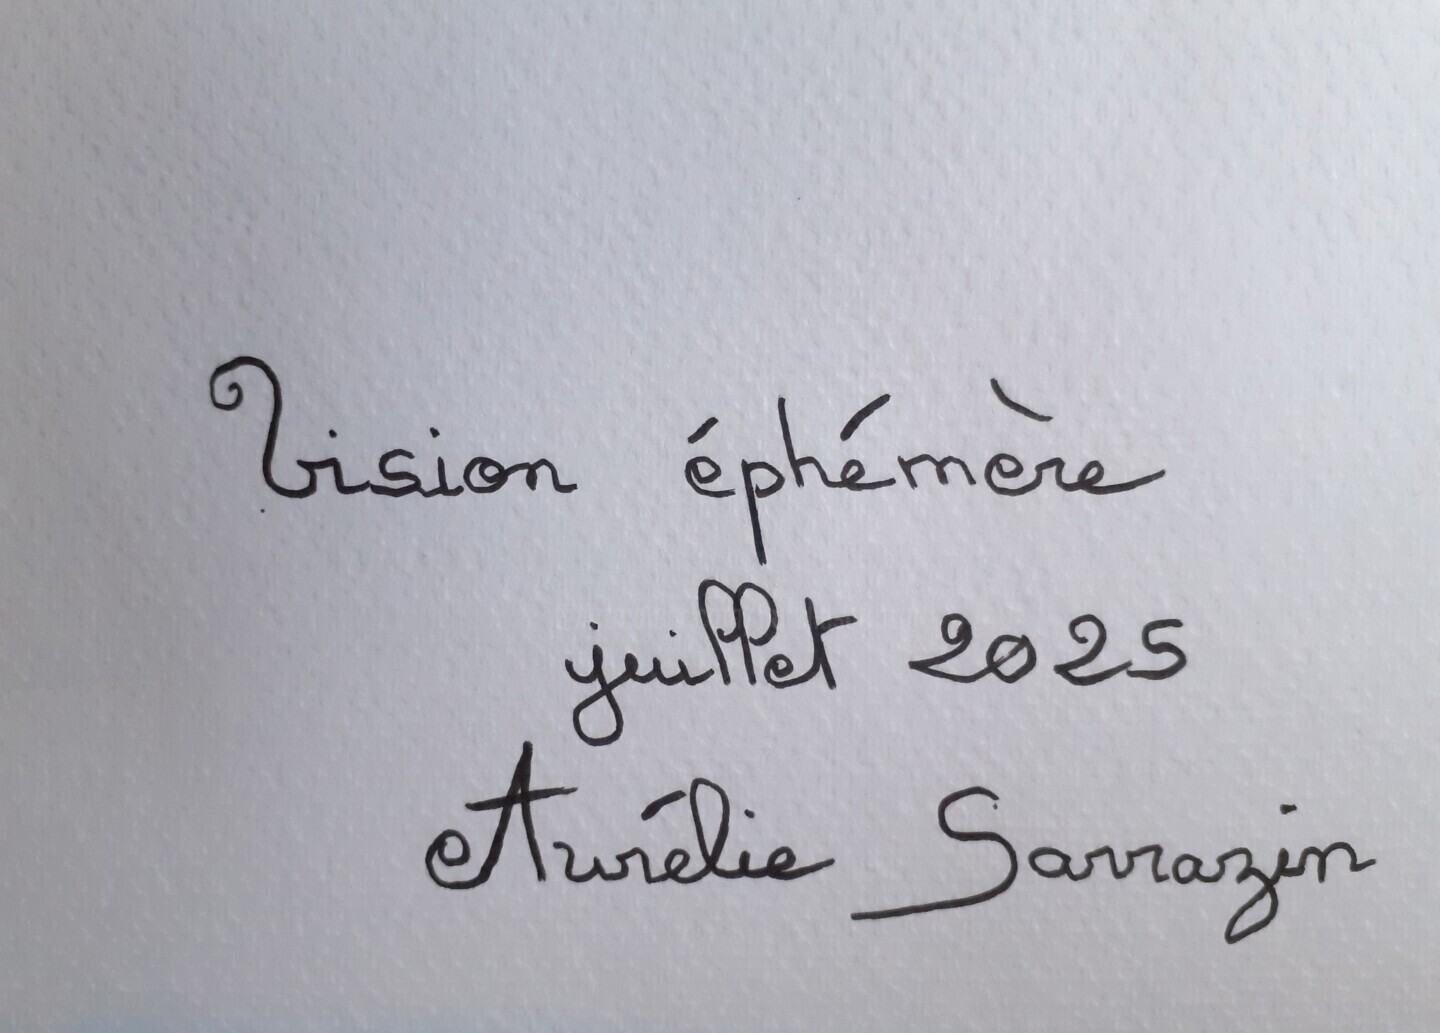 Vision éphémère
juillet 2025
Aurélie Sarrazin